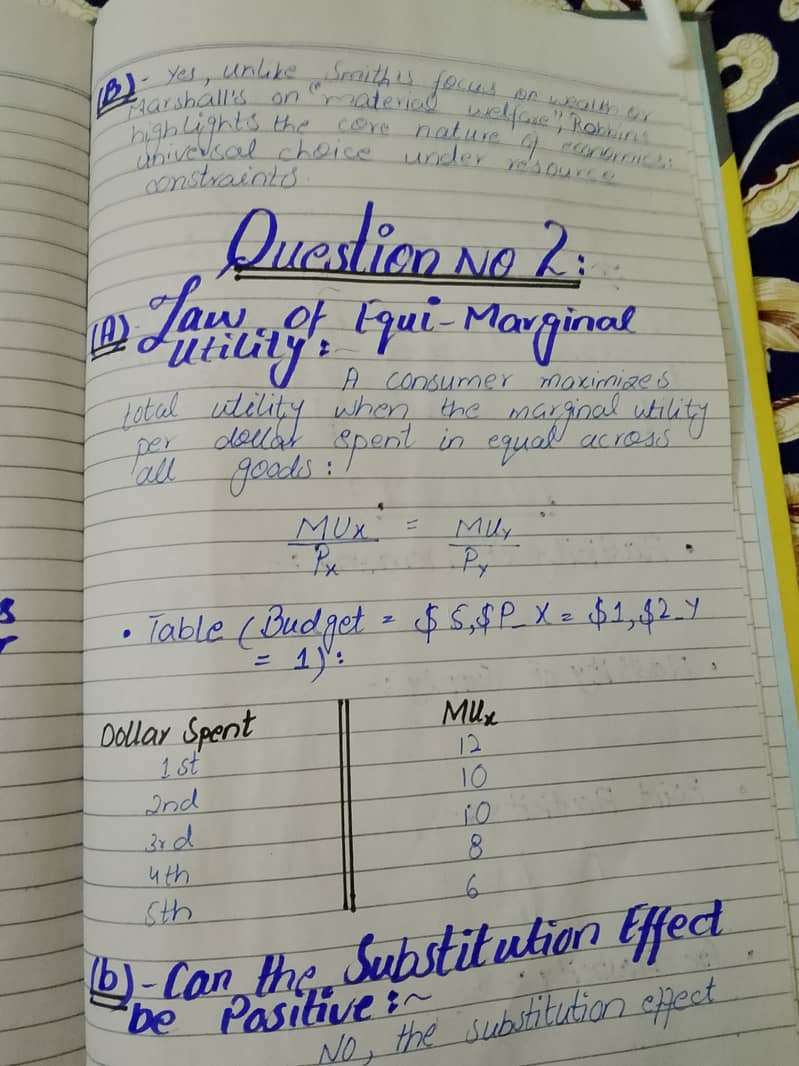 (B)- Yes, unlike Smith's focus on wealth or
Marshall's on "material welfare", Robbins
highlights the core nature of economics:
universal choice under resource
constraints.
Question NO 2:
(A) Law of Equi-Marginal
Utility:
A consumer maximizes
total utility when the marginal utility
per dollar spent in equal across
all goods:
MUx = MUy
Px Py
• Table (Budget = $ 5, $P_X = $1, $2_Y
= 1):
Dollar Spent MUx
1st 12
2nd 10
3rd 10
4th 8
5th 6
(b)- Can the Substitution Effect
be Positive:~
NO, the substitution effect